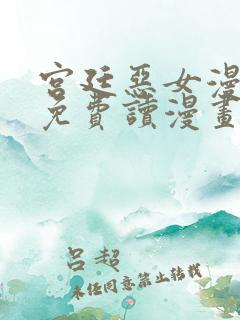 宫廷惡女漫
免費讀漫畫
吕超
未经同意禁止转载